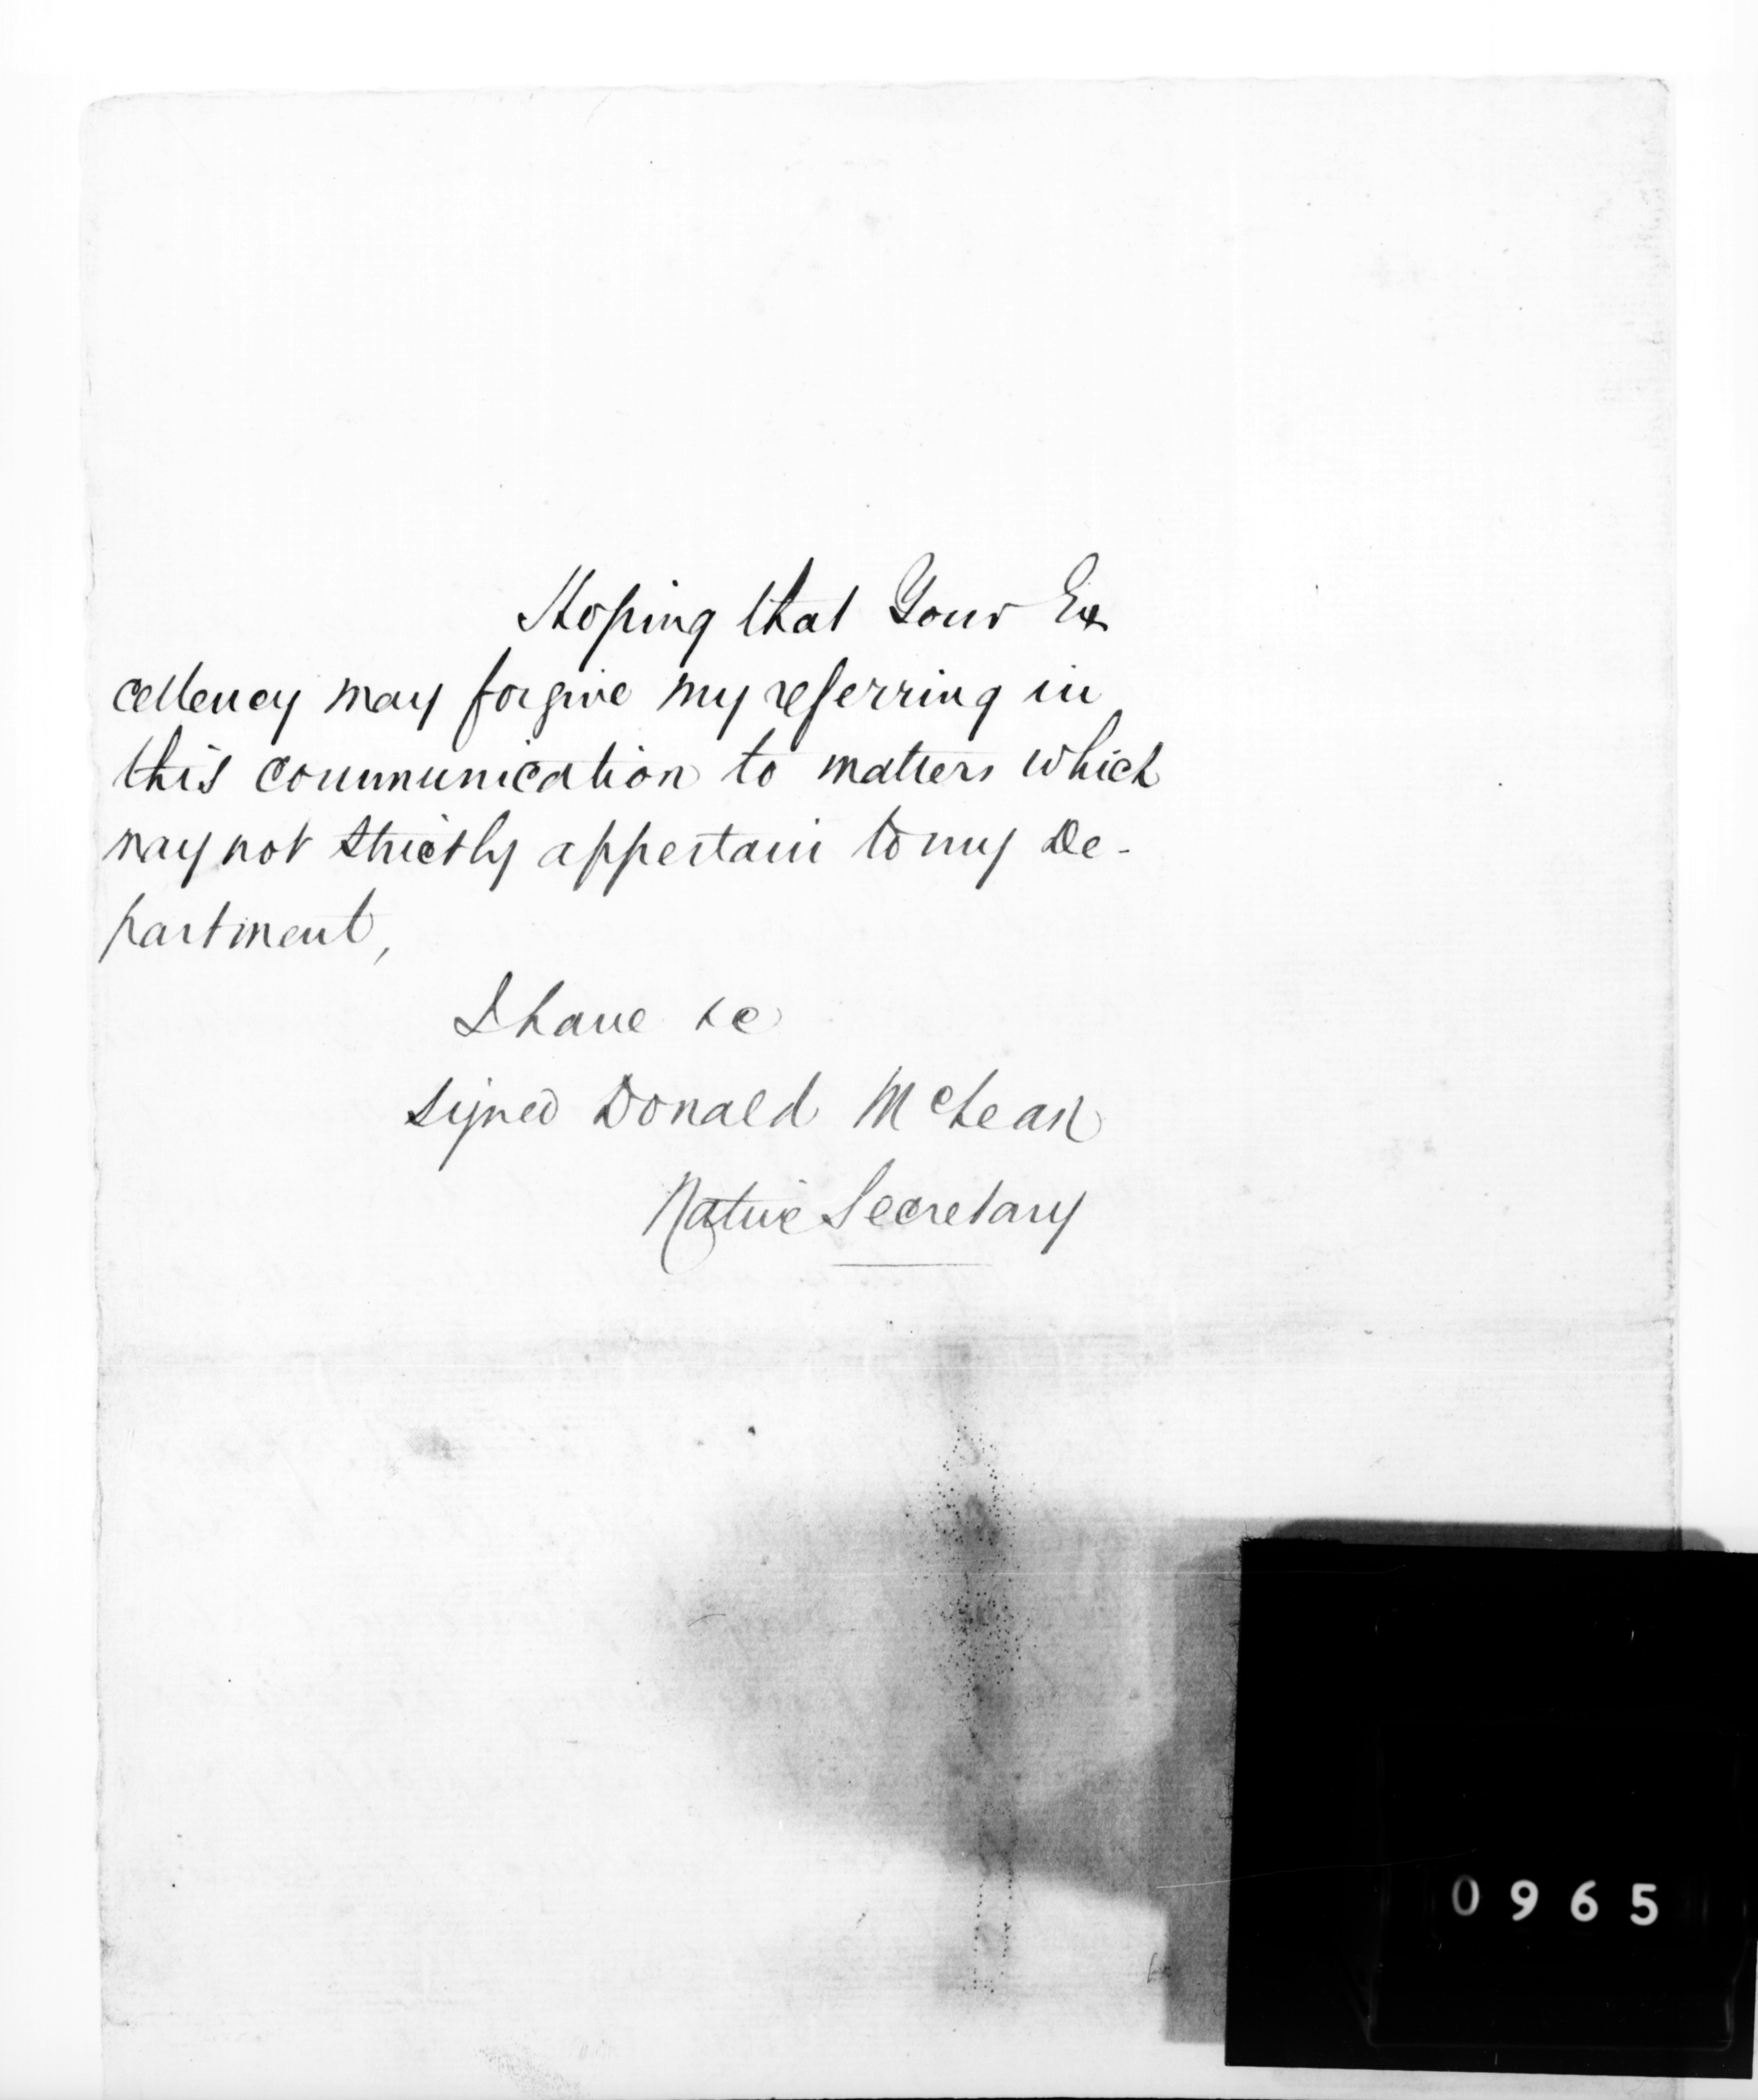 Hoping that Your Ex
cellency may forgive my referring in
this communication to matters which
may not strictly appertain to my De-
partment,
I have &c
Signed Donald McLean
Native Secretary
0965